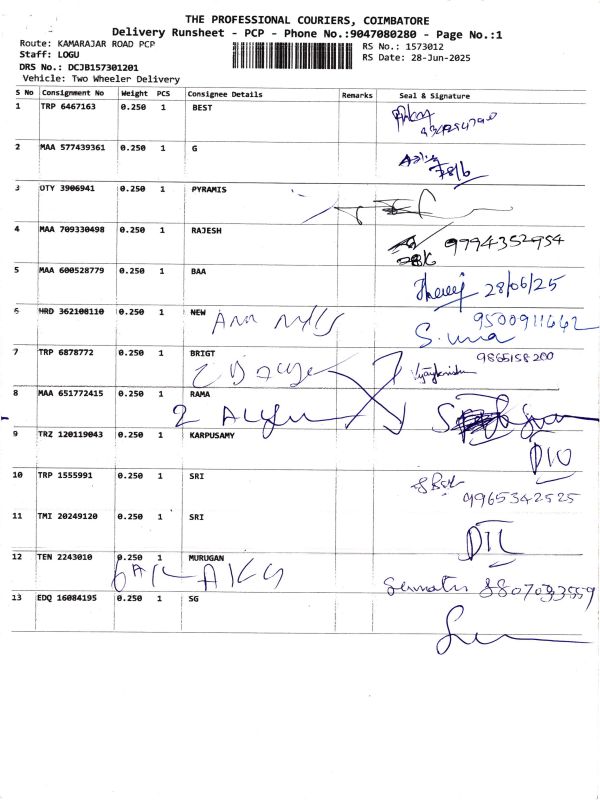 THE PROFESSIONAL COURIERS, COIMBATORE
Delivery Runsheet - PCP - Phone No.:9047080280 - Page No.:1
Route: KAMARAJAR ROAD PCP
RS No.: 1573012
Staff: LOGU
RS Date: 28-Jun-2025
DRS No.: DCJB157301201
Vehicle: Two Wheeler Delivery
S No Consignment No Weight PCS Consignee Details Remarks Seal & Signature
1 TRP 6467163 0.250 1 BEST
2 MAA 577439361 0.250 1 G
28/6
3 OTY 3906941 0.250 1 PYRAMIS
4 MAA 709330498 0.250 1 RAJESH
9994352954
5 MAA 600528779 0.250 1 BAA
28/06/25
6 HRD 362108110 0.250 1 NEW
9500911642
7 TRP 6878772 0.250 1 BRIGT
9865158200
8 MAA 651772415 0.250 1 RAMA
9 TRZ 120119043 0.250 1 KARPUSAMY
10 TRP 1555991 0.250 1 SRI
9965342525
11 TMI 20249120 0.250 1 SRI
12 TEN 2243010 0.250 1 MURUGAN
13 EDQ 16084195 0.250 1 SG